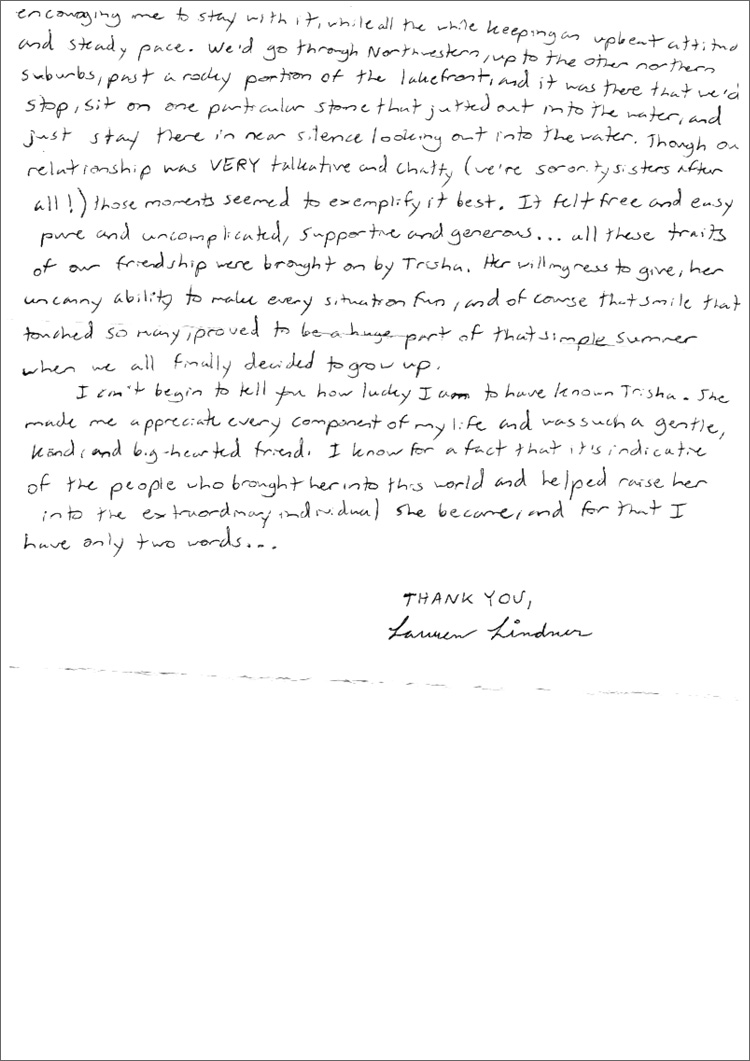 encouraging me to stay with it, while all the while keeping an upbeat attitud
and steady pace. We'd go through Northwestern, up to the other northern
suburbs, past a rocky portion of the lakefront, and it was there that we'd
stop, sit on one particular stone that jutted out into the water, and
just stay there in near silence looking out into the water. Though ou
relationship was VERY talkative and chatty (we're sorority sisters after
all!) those moments seemed to exemplify it best. It felt free and easy
pure and uncomplicated, supportive and generous... all these traits
of our friendship were brought on by Trisha. Her willingness to give, her
uncanny ability to make every situation fun, and of course that smile that
touched so many, proved to be a huge part of that simple summer
when we all finally decided to grow up.
I can't begin to tell you how lucky I am to have known Trisha. She
made me appreciate every component of my life and was such a gentle,
kind, and big-hearted friend. I know for a fact that it's indicative
of the people who brought her into this world and helped raise her
into the extraordinary individual she became, and for that I
have only two words...
THANK YOU,
Lauren Lindner